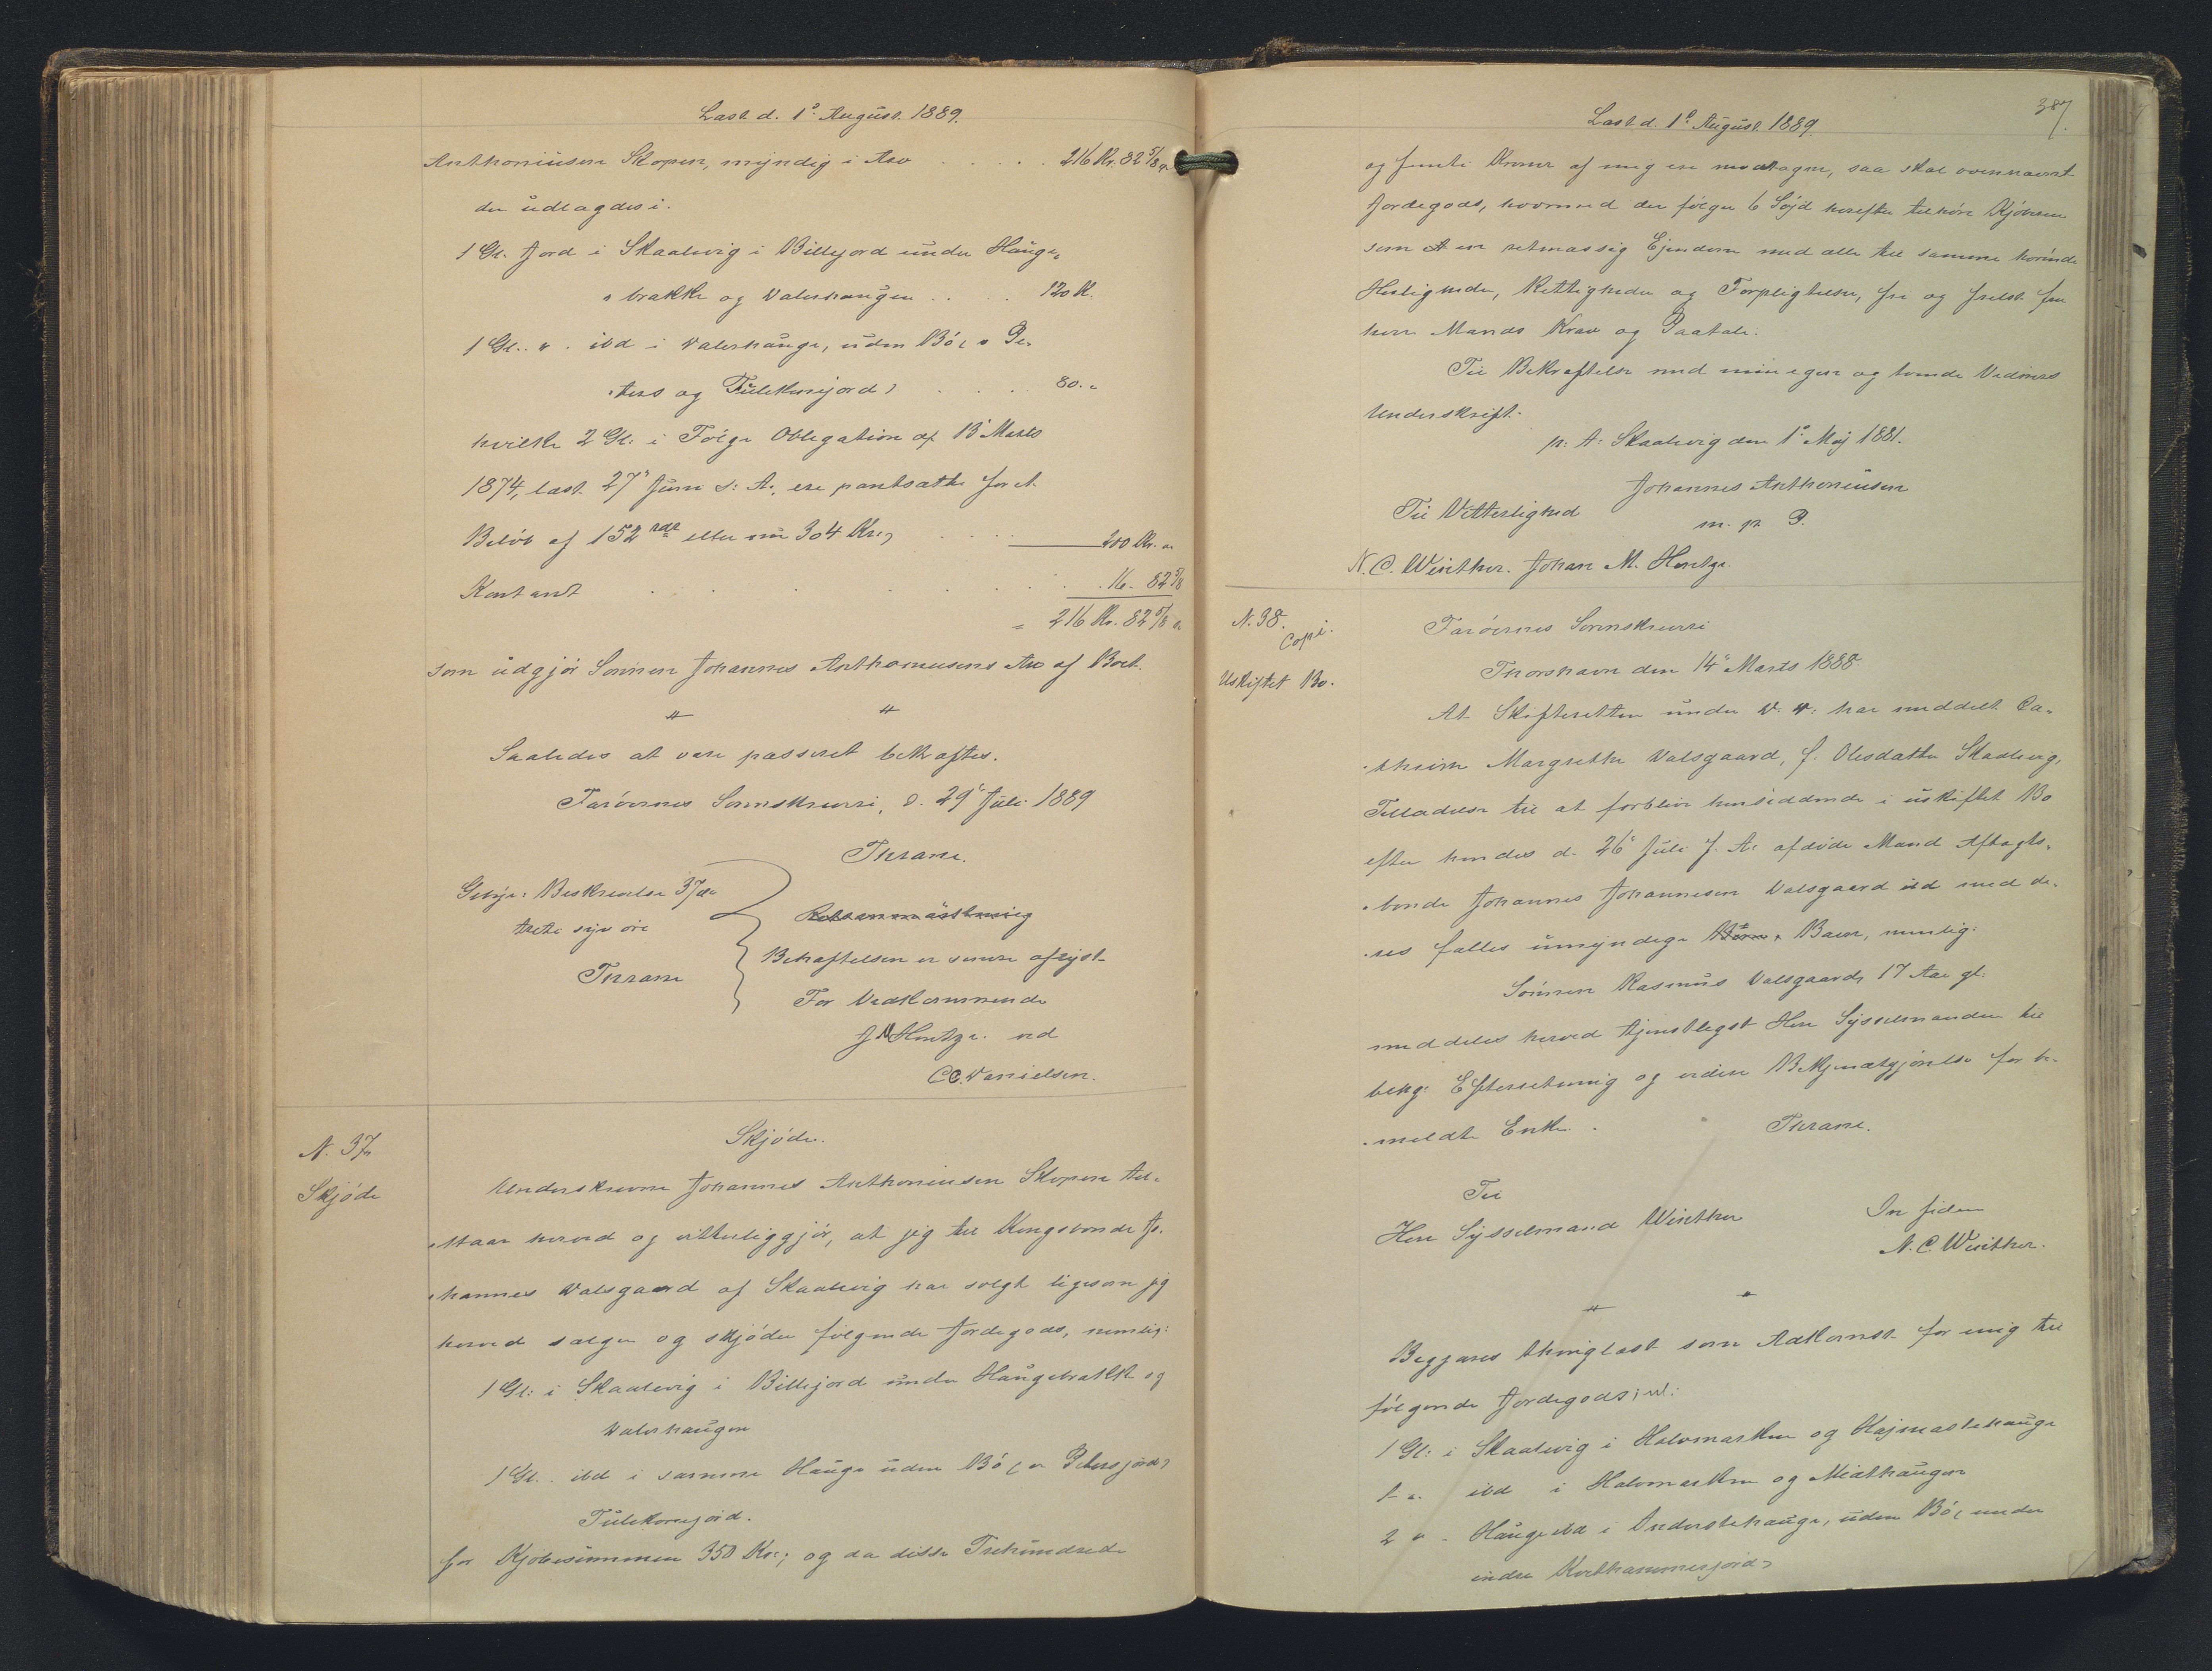 Læst d. 1ṡ August 1889.
Anthoniusen Skopen, myndig i Arv . . . . . 216 Kr. 82 5/8 ø.
der udlagdes i.
1 Gl. Jord i Skaalevig i Billejord under Hauge-
brække og Valerhaugen . . . . 120 K.
1 Gl. " . ibd i Valerhauge, uden Bø, " Pe-
ters og Tulekonejord) . . . . 80. "
hvilke 2 Gl: i Følge Obligation af 13' Marts
1874, læst 27' Juni s: A., ere pantsatte for et
Beløb af 152 rdr eller nu 304 Kr., . . . 200 Kr. "
Kontant . . . . . . . . 16 - 82 5/8
= 216 Kr. 82 5/8 ø
som udgjør Sønnen Johannes Anthoniusens Arv af Boet.
" "
Saaledes at være passeret bekræftes.
Færøernes Sorenskriveri, d. 29' Juli 1889
Thrane.
Gebyr: Beskrivelse 37 øre
trette syv øre
Thrane
Behæftelsen er senere aflyst
For Vedkommende
J M Hentze. ved
C C. Danielsen.
N. 37.
Skjøde
Skjøde.
Underskrevne Johannes Anthoniusen Skopen til-
staar herved og vitterliggjør, at jeg til Kongsbonde Jo-
hannes Dalsgaard af Skaalevig har solgt ligesom jeg
herved sælger og skjøder følgende Jordegods, nemlig:
1 Gl: i Skaalevig i Billejord under Haugebrække og
Valerhaugen
1 Gl. . ibd i samme Hauge uden Bø ( " Petersjord)
Tulekonejord.
for Kjøbesummen 350 Kr.; og da disse Trehundrede
387.
Læst d. 1ṡ August 1889
og femti Kroner af mig ere modtagne, saa skal ovennævnt
Jordegods, hvormed der følger 6 Søjd herefter tilhøre Kjøberen
som et en retmæssig Ejendom med alle til samme hørende
Herligheder, Rettigheder og Forpligtelser, fri og frelst for
hver Mands Krav og Paatale.
Til Bekræftelse med min egen og tvende Vidners
Underskrift.
p: t: Skaalevig den 1' Maj 1881.
Johannes Anthoniusen
m. p. P.
Til Vitterlighed
N. C. Winther. Johan M. Hentze.
N. 38.
Copi.
Uskiftet Bo.
Færøernes Sorenskriveri
Thorshavn den 14' Marts 1888
At Skifteretten under D. D: har meddelt Ca-
thrine Margrethe Dalsgaard, f. Olesdatter Skaalevig,
Tilladelse til at forblive hensiddende i uskiftet Bo
efter hendes d. 26' Juli f. A. afdøde Mand Aftægts-
bonde Johannes Johannesen Dalsgaard ibd med de-
res fælles umyndige Barn, nemlig:
Sønnen Rasmus Dalsgaard, 17 Aar gl.
meddeles herved tjenstligst Herr Sysselmanden til
behg. Efterretning og videre Bekjendtgjørelse for be-
meldte Enke. . Thrane.
Til
Herr Sysselmand Winther
In fidem
N. C. Winther.
" "
Begjæres thinglæst som Adkomst for mig til
følgende Jordegods; nl:
1 Gl: i Skaalevig i Halvmarken og Højmastehauge
1 - " . ibd i Halvmarken og Midthaugen
2 " - Hauge ibd i Anderstehauge, uden Bø, under
indre Kvithammerjord)